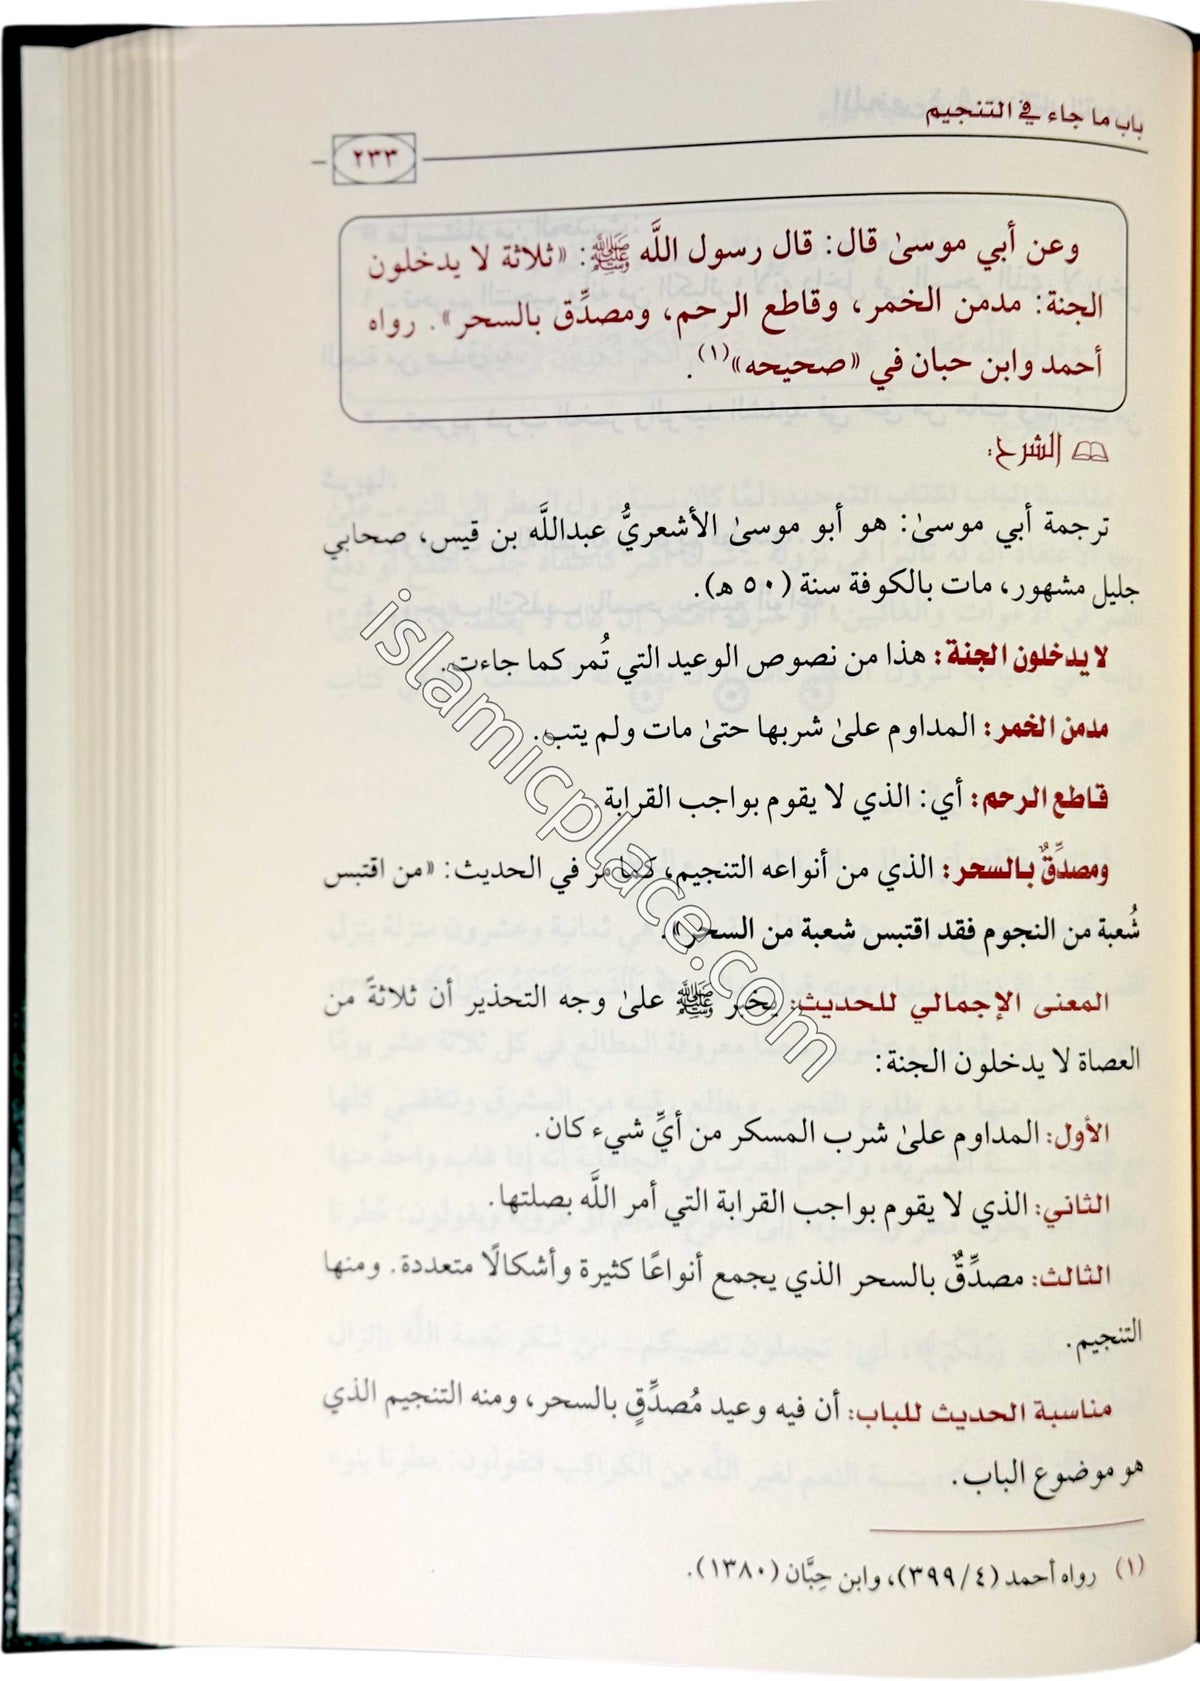 باب ما جاء في التنجيم
٢٣٣
وعن أبي موسىٰ قال: قال رسول اللَّه ﷺ: «ثلاثة لا يدخلون
الجنة: مدمن الخمر، وقاطع الرحم، ومصدِّق بالسحر». رواه
أحمد وابن حبان في «صحيحه»(١).
الشرح:
ترجمة أبي موسىٰ: هو أبو موسىٰ الأشعريُّ عبداللَّه بن قيس، صحابي
جليل مشهور، مات بالكوفة سنة (٥٠ هـ).
لا يدخلون الجنة: هذا من نصوص الوعيد التي تُمر كما جاءت.
مدمن الخمر: المداوم علىٰ شربها حتىٰ مات ولم يتب.
قاطع الرحم: أي: الذي لا يقوم بواجب القرابة.
ومصدِّقٌ بالسحر: الذي من أنواعه التنجيم، كما مر في الحديث: «من اقتبس
شُعبة من النجوم فقد اقتبس شعبة من السحر».
المعنى الإجمالي للحديث: يخبر ﷺ علىٰ وجه التحذير أن ثلاثةً من
العصاة لا يدخلون الجنة:
الأول: المداوم علىٰ شرب المسكر من أيِّ شيء كان.
الثاني: الذي لا يقوم بواجب القرابة التي أمر اللَّه بصلتها.
الثالث: مصدِّقٌ بالسحر الذي يجمع أنواعًا كثيرة وأشكالًا متعددة. ومنها
التنجيم.
مناسبة الحديث للباب: أن فيه وعيد مُصدِّقٍ بالسحر، ومنه التنجيم الذي
هو موضوع الباب.
(١) رواه أحمد (٣٩٩/٤)، وابن حِبَّان (١٣٨٠).
islamicplace.com